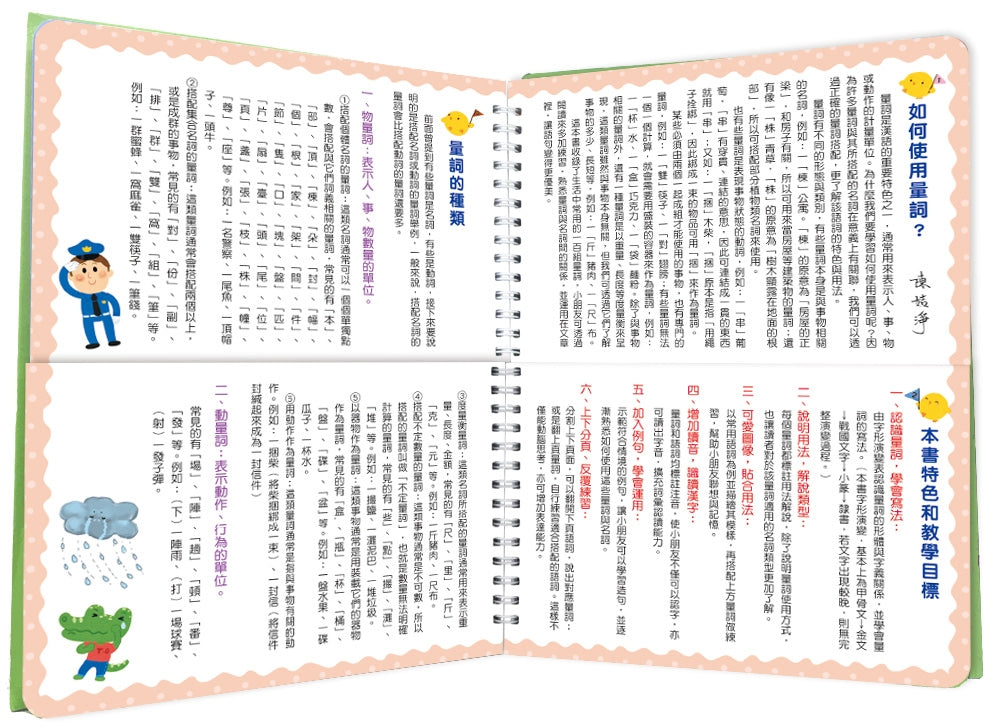 如何使用量詞？
陳枝淨
量詞是漢語的重要特色之一，通常用來表示人、事、物
或動作的計量單位。為什麼我們要學習如何使用量詞呢？因
為許多量詞與其所搭配的名詞在意義上有關聯，我們可以透
過正確的量詞搭配，更了解該語詞的特色與用法。
量詞有不同的形態與類別，有些量詞本身是與事物相關
的名詞，例如：一「棟」公寓。「棟」的原意為「房屋的正
梁」，和房子有關，所以可用來當房屋等建築物的量詞；還
有像一「株」青草，「株」的原意為「樹木顯露在地面的根
部」，所以可搭配部分植物類名詞來使用。
也有些量詞是表現事物狀態的動詞，例如：一「串」葡
萄，「串」有穿貫、連結的意思，因此可連結成一貫的東西
就用「串」；又如：一「捆」木柴，「捆」原本是指「用繩
子拴綁」，因此綁成一束的物品可用「捆」來作為量詞。
某些必須由兩個一起成組才能使用的事物，也有專門的
量詞，例如：一「雙」筷子、一「對」翅膀；有些量詞無法
一個一個計算，就會需要用盛裝的容器來作為量詞，例如：
一「杯」水、一「盒」巧克力、一「袋」麵粉。除了與事物
相關的量詞外，還有一種量詞是以重量、長度等度量衡來呈
現，這類量詞雖然與事物本身無關，但我們可透過它們了解
事物的多少、長短等，例如：一「斤」豬肉、一「尺」布。
這本書收錄了生活中常用的一百組量詞，小朋友可透過
閱讀來多加練習，熟悉量詞與名詞間的關係，並運用在文章
裡，讓語句變得更優美。
本書特色和教學目標
一、認識量詞，學會寫法：
由字形演變表認識量詞的形體與字義關係，並學會量
詞的寫法。（本書字形演變，基本上為甲骨文→金文
→戰國文字→小篆→隸書，若文字出現較晚，則無完
整演變過程。）
二、說明用法，解說類型：
每個量詞都標註用法解說，除了說明量詞使用方式，
也讓讀者對於該量詞適用的名詞類型更加了解。
三、可愛圖像，貼合用法：
以常用語詞為例並描繪其模樣，再搭配上方量詞做練
習，幫助小朋友聯想與記憶。
四、增加讀音，識讀漢字：
量詞和語詞均標註注音，使小朋友不僅可以認字，亦
可讀出字音，擴充詞彙認讀能力。
五、加入例句，學會運用：
示範符合情境的例句，讓小朋友可以學習造句，並逐
漸熟悉如何使用這些量詞與名詞。
六、上下分頁、反覆練習：
分割上下頁面，可以翻開下頁語詞，說出對應量詞；
或是翻上頁量詞，自行練習適合搭配的語詞。這樣不
僅能動腦思考，亦可增加表達能力。
量詞的種類
前面曾提到有些量詞是名詞，有些是動詞，接下來要說
明的是搭配名詞或動詞的量詞舉例。一般來說，搭配名詞的
量詞會比搭配動詞的量詞還要多。
一、物量詞：表示人、事、物數量的單位。
①搭配個體名詞的量詞：這類名詞通常可以一個個單獨點
數，會搭配與它們詞義相關的量詞，常見的有「本」、
「部」、「頂」、「棟」、「朵」、「封」、「幅」、
「個」、「根」、「家」、「架」、「間」、「件」、
「節」、「隻」、「口」、「塊」、「盤」、「匹」、
「片」、「扇」、「臺」、「頭」、「尾」、「位」、
「頁」、「盞」、「張」、「枝」、「株」、「幢」、
「尊」、「座」等。例如：一名警察、一尾魚、一頂帽
子、一頭牛。
②搭配集合名詞的量詞：這類量詞通常會搭配兩個以上，
或是成群的事物，常見的有「對」、「份」、「副」、
「排」、「群」、「雙」、「窩」、「組」、「筆」等。
例如：一群蜜蜂、一窩麻雀、一雙筷子、一筆錢。
③度量衡量詞：這類名詞所搭配的量詞通常用來表示重
量、長度、金額，常見的有「尺」、「里」、「斤」、
「克」、「元」等。例如：一斤豬肉、一尺布。
④搭配不定數量的量詞：這類事物通常是不可數，所以
搭配的量詞叫做「不定量詞」，也就是數量無法明確
計算的量詞，常見的有「些」、「點」、「撮」、「灘」、
「堆」等。例如：一撮鹽、一灘泥巴、一堆垃圾。
⑤以器物作為量詞：這類事物通常是用裝載它們的器物
作為量詞，常見的有「盒」、「瓶」、「杯」、「桶」、
「盤」、「碟」、「盆」等。例如：一盤水果、一碟
瓜子、一杯水。
⑤用動作作為量詞：這類量詞通常是指與事物有關的動
作。例如：一捆柴（將柴捆綁成一束）、一封信（將信件
封緘起來成為一封信件）
二、動量詞：表示動作、行為的單位。
常見的有「場」、「陣」、「趟」、「頓」、「番」、
「發」等。例如：（下）一陣雨、（打）一場球賽、
（射）一發子彈。